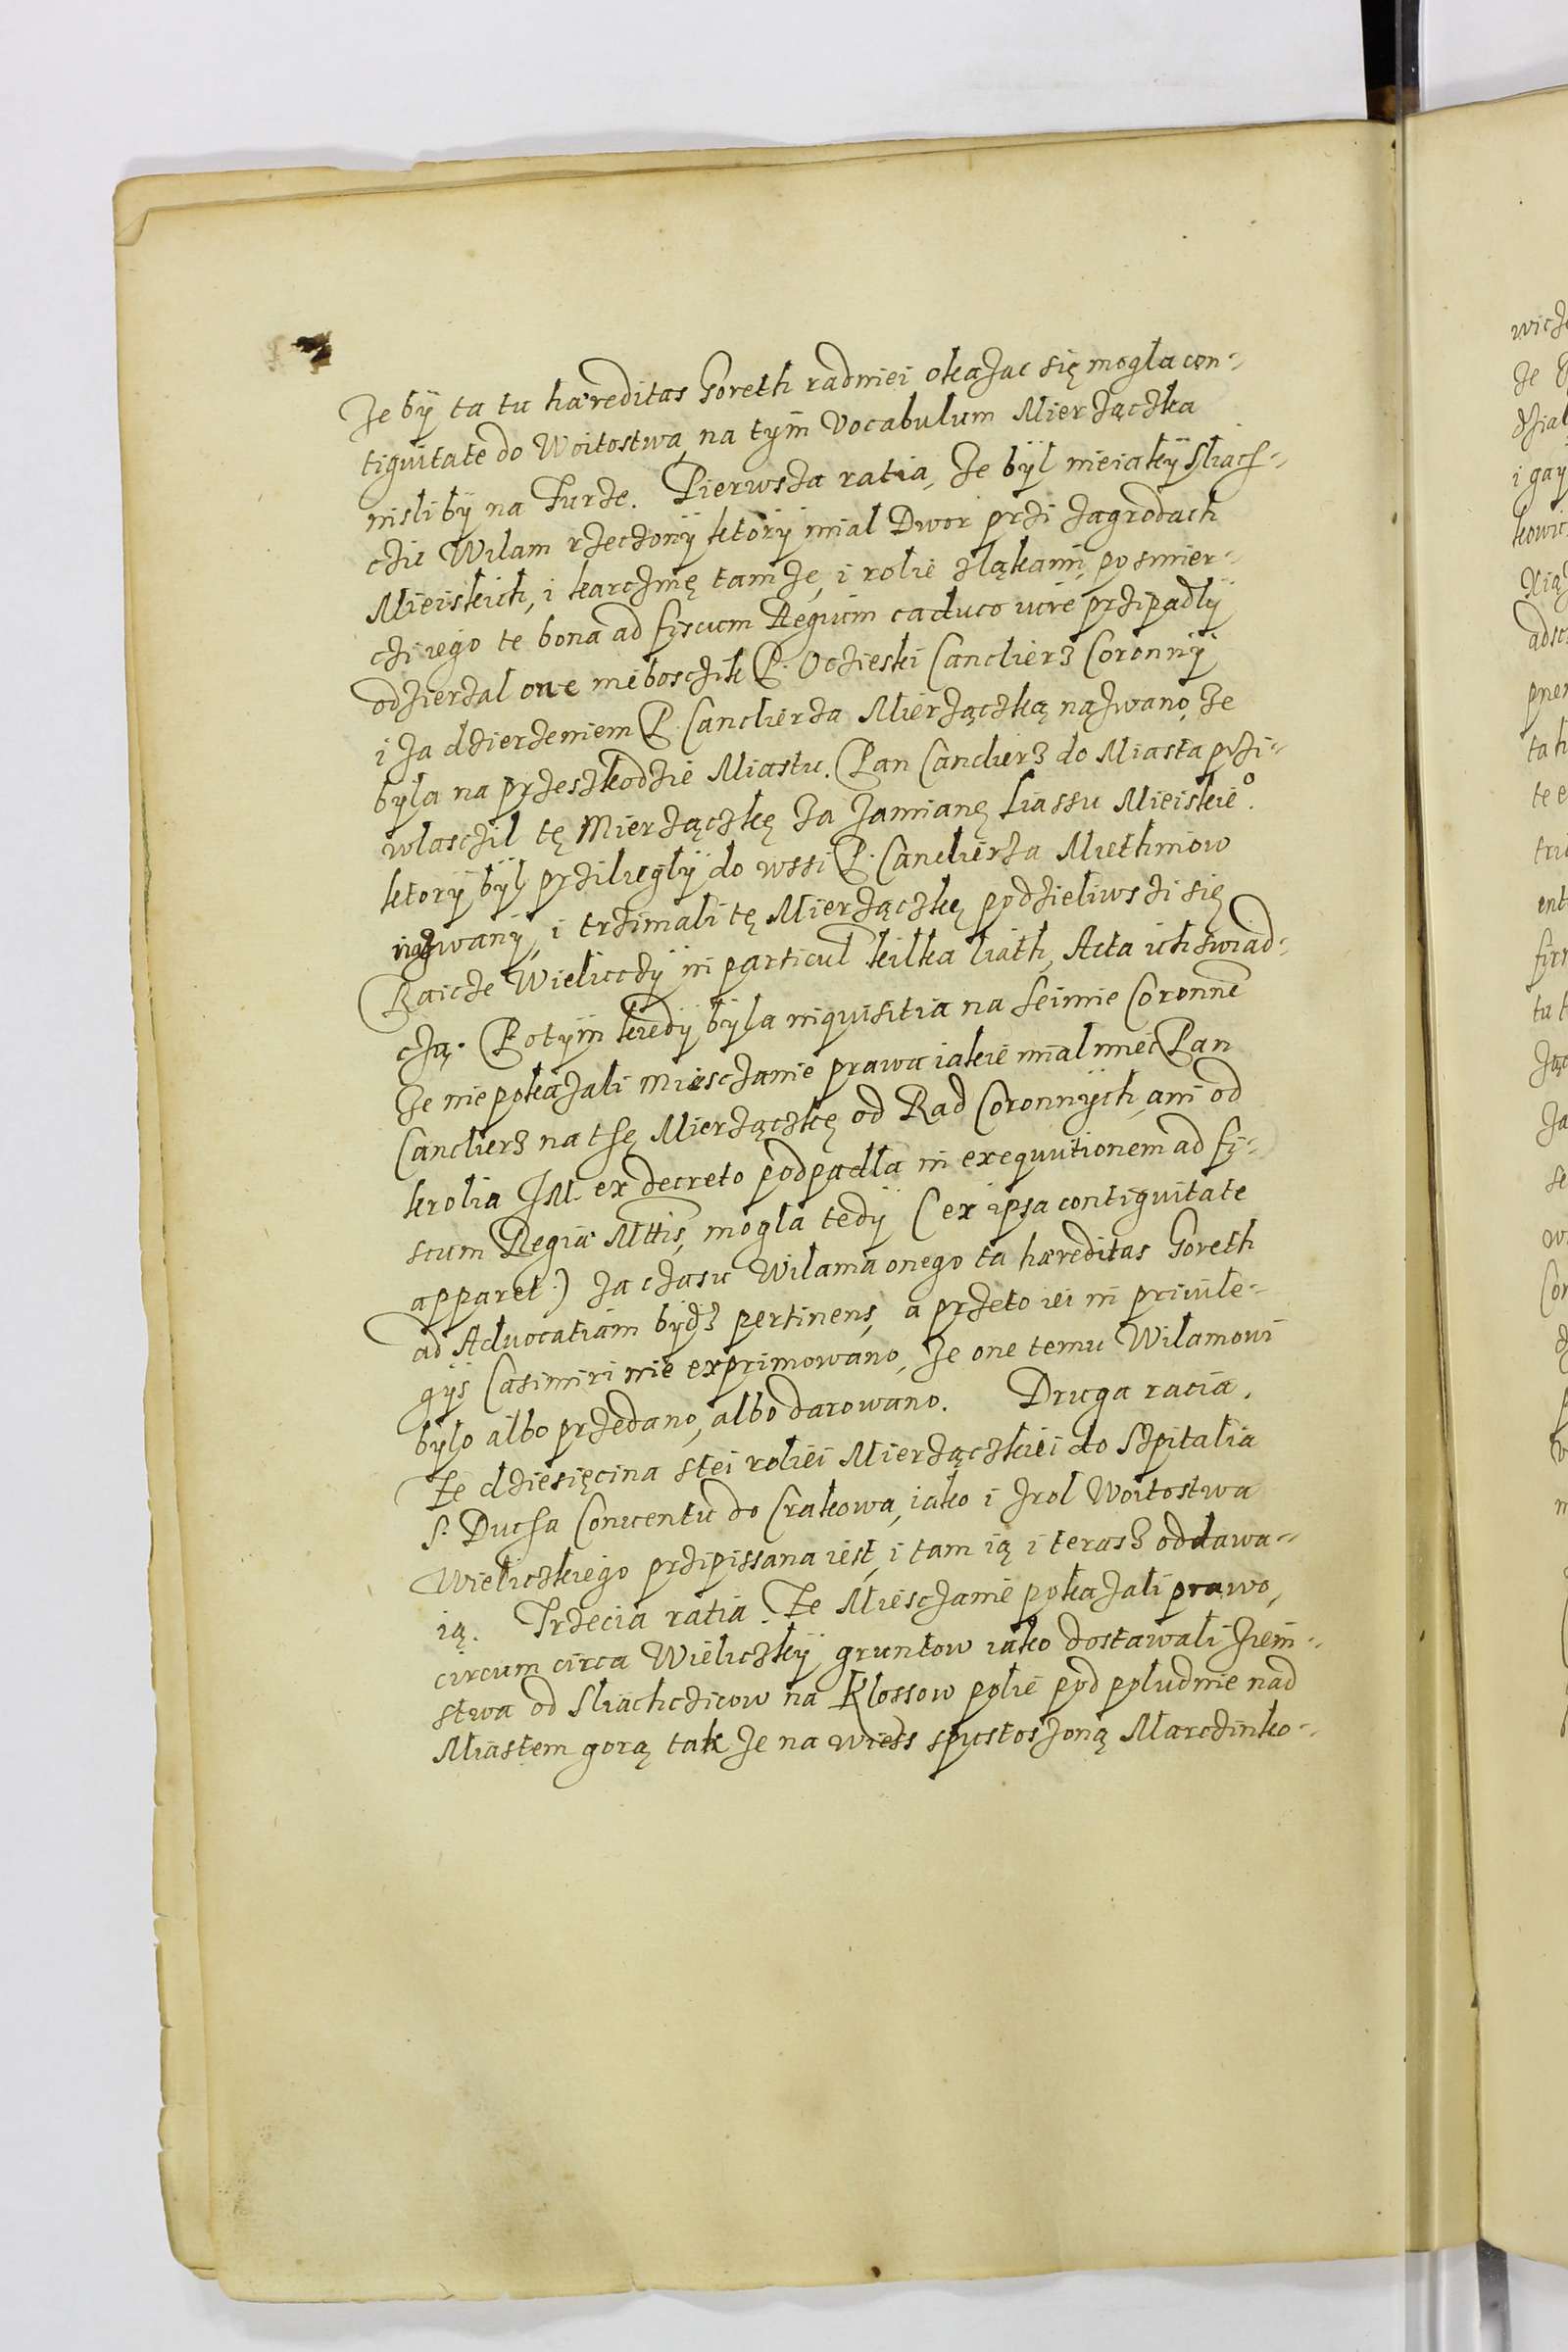 Że bÿ ta tu hæreditas Goreth radniei okażac się mogla con-
tiguitate do Woitostwa, na tÿm Vocabulum Mierżączka
nisli bÿ na Turże. Pierwsża ratia, że bÿl nieiakÿ Sliach-
cżic Wilam rżecżonÿ ktorÿ mial Dwor prżi żagrodach
Mieiskich, i karcżmę tamże, i rolie złąkami, po smier-
cżi iego te bona ad fiscum Regium caduco iure prżipadlÿ
odżierżal one niebosżcżik P. Ocżieski Canclierz Coronnÿ
i ża dżierżeniem P. Canclierża Mierżączką nążwano, że
byla na prżeszkodżie Miastu. Pan Canclierz do Miasta prżi-
wlascżil tę Mierżączkę ża żamianę Liassu Mieiskie°.
ktorÿ bÿl prżilieglÿ do wssi P. Canclierża Miethniow
nazwanÿ, i trżimali tę Mierżączkę podżieliwsżi się
Raicże Wieliccżÿ in particul kilka liath, Acta ich swiad-
cżą. Potÿm kiedÿ bÿla inquisitia na Seimie Coronnē
że nie pokażali Miescżanie prawa iakie mial miec Pan
Canclierz na thę Mierżączkę od Rad Coronnÿch, ani od
krolia JM. ex decreto podpadla in exequutionem ad fi-
scum Regiæ Mttis, mogla tedÿ (ex ipsa contiguitate
apparet) ża cżasu Wilama onego ta hæreditas Goreth
ad Advocatiam bÿdz pertinens, a prżeto iei in privile-
gÿs Casimiri nie exprimowano, że one temu Wilamowi
bylo albo prżedano, albo darowano. Druga racia,
że dżiesięcina stei roliei Mierżączkiei do Szpitalia
S. Ducha Conventu do Crakowa, iako i zrol Woitostwa
Wieliczkiego prżipissana iest, i tam ią i terasz oddawa-
ią. Trżecia ratia. że Miescżanie pokażali prawo,
circum circa Wieliczkÿ gruntow iako dostawali żiem-
stwa od Sliachcżicow na Klossow polie pod poludnie nad
Miastem gorą także na wiess spustosżoną Marcżinko-